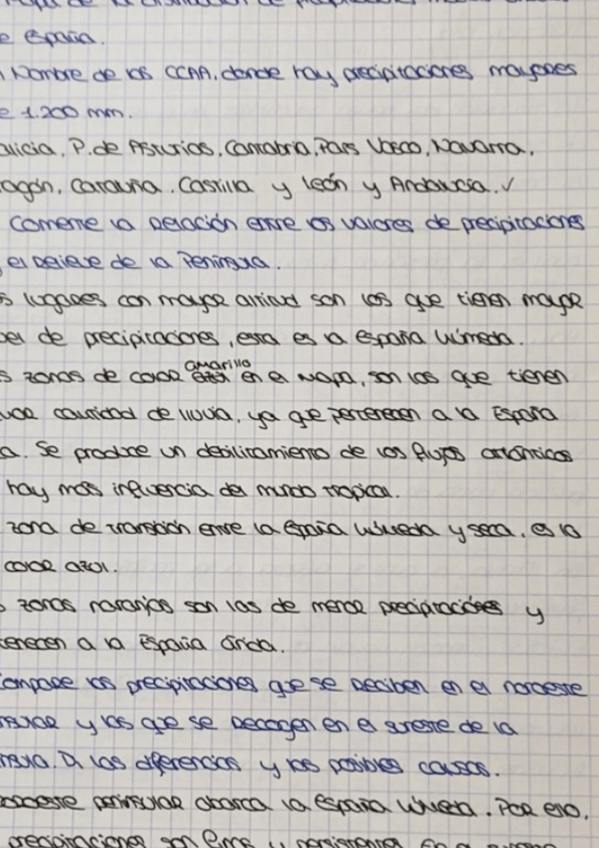 mapa de la distribución de precipitaciones
e España.
Nombre de las CCAA. donde hay precipitaciones mayores
e 1.200 mm.
alicia, P. de Asturias, Cantabria, País Vasco, Navarra,
agón, Cataluña, Castilla y León y Andalucía. ✓
Comente la relación entre los valores de precipitaciones
el relieve de la Península.
s lugares con mayor altitud son los que tienen mayor
el de precipitaciones, esta es la España húmeda.
s zonas de color amarillo en el mapa, son las que tienen
cantidad de lluvia, ya que pertenecen a la España
a. Se produce un debilitamiento de los flujos atlánticos
hay más influencia del mundo tropical.
zona de transición entre la España húmeda y seca, es la
color azul.
s zonas naranjas son las de menor precipitaciónes y
tenecen a la España árida.
ompare las precipitaciones que se reciben en el noroeste
nsular y las que se recogen en el sureste de la
nsula. Di las diferencias y las posibles causas.
noroeste peninsular abarca la España húmeda. Por ello,
precipitaciones son finas y persistentes. En el